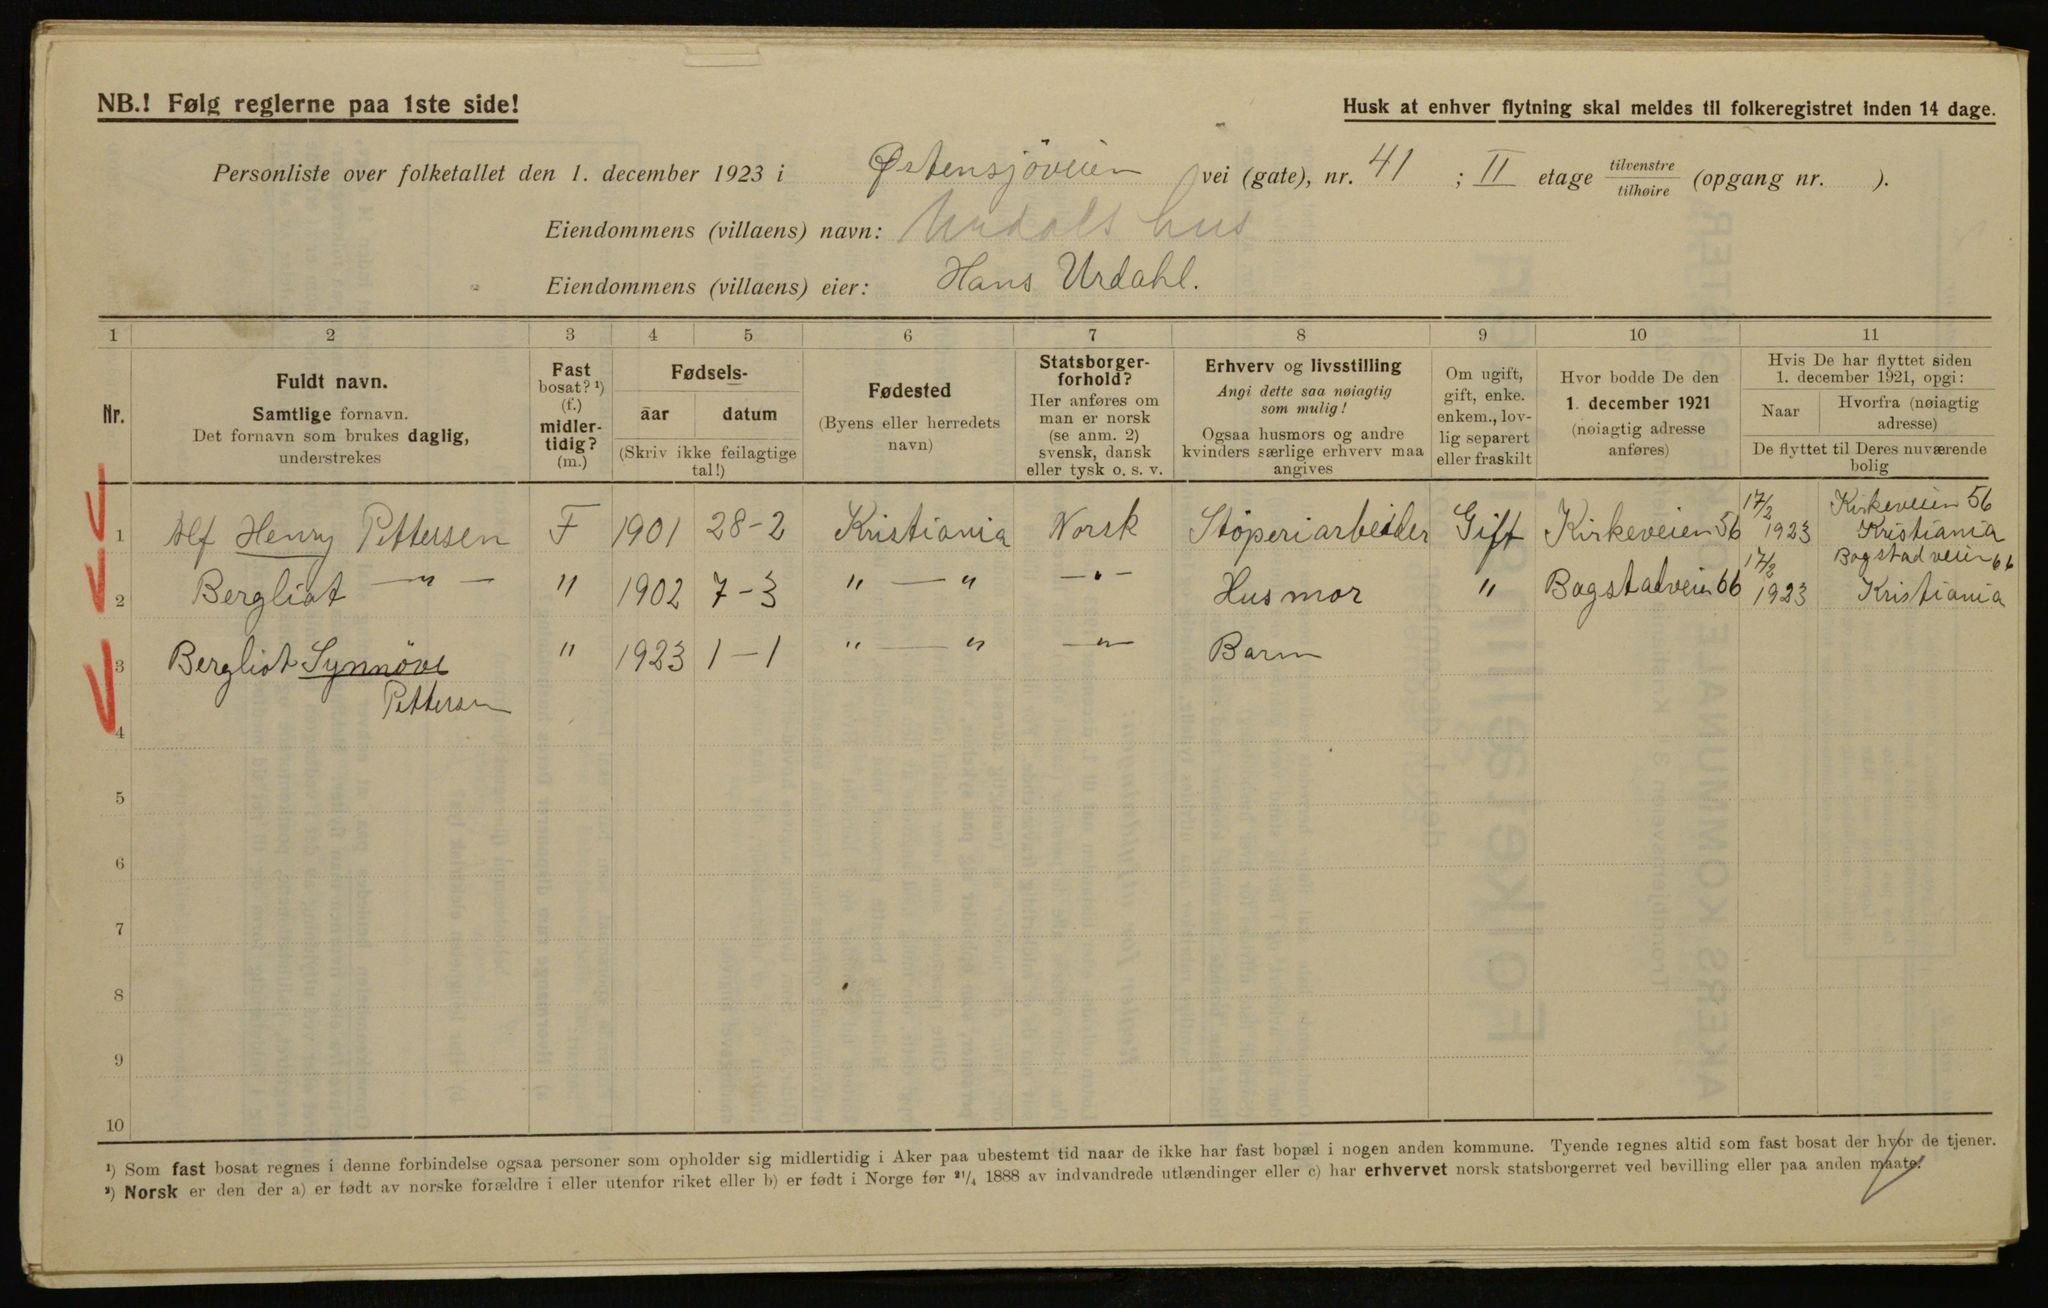 NB.! Følg reglerne paa 1ste side!
Husk at enhver flytning skal meldes til folkeregistret inden 14 dage.
Personliste over folketallet den 1. december 1923 i Østensjöveien vei (gate), nr. 41 ; II etage tilvenstre tilhøire (opgang nr. ).
Eiendommens (villaens) navn: Urdals hus
Eiendommens (villaens) eier: Hans Urdahl.
1 2 3 4 5 6 7 8 9 10 11
Nr.
Fuldt navn.
Samtlige fornavn.
Det fornavn som brukes daglig,
understrekes
Fast
bosat? ¹)
(f.)
midler-
tidig?
(m.)
Fødsels-
aar datum
(Skriv ikke feilagtige
tal!)
Fødested
(Byens eller herredets
navn)
Statsborger-
forhold?
Her anføres om
man er norsk
(se anm. 2)
svensk, dansk
eller tysk o. s. v.
Erhverv og livsstilling
Angi dette saa nøiagtig
som mulig!
Ogsaa husmors og andre
kvinders særlige erhverv maa
angives
Om ugift,
gift, enke.
enkem., lov-
lig separert
eller fraskilt
Hvor bodde De den
1. december 1921
(nøiagtig adresse
anføres)
Hvis De har flyttet siden
1. december 1921, opgi:
Naar
Hvorfra (nøiagtig
adresse)
De flyttet til Deres nuværende
bolig
1 Alf Henry Pettersen F 1901 28-2 Kristiania Norsk Stöperiarbeider Gift Kirkeveien 56 17/2 1923 Kirkeveien 56 Kristiania
2 Bergliot —"— " 1902 7-3 " — " —"— Husmor " Bogstadveien 66 17/2 1923 Bogstadveien 66 Kristiania
3 Bergliot Synnöve " 1923 1-1 " — " —"— Barn
Pettersen
4
5
6
7
8
9
10
¹) Som fast bosat regnes i denne forbindelse ogsaa personer som opholder sig midlertidig i Aker paa ubestemt tid naar de ikke har fast bopæl i nogen anden kommune. Tyende regnes altid som fast bosat der hvor de tjener.
²) Norsk er den der a) er født av norske forældre i eller utenfor riket eller b) er født i Norge før ²¹/₄ 1888 av indvandrede utlændinger eller c) har erhvervet norsk statsborgerret ved bevilling eller paa anden maate.